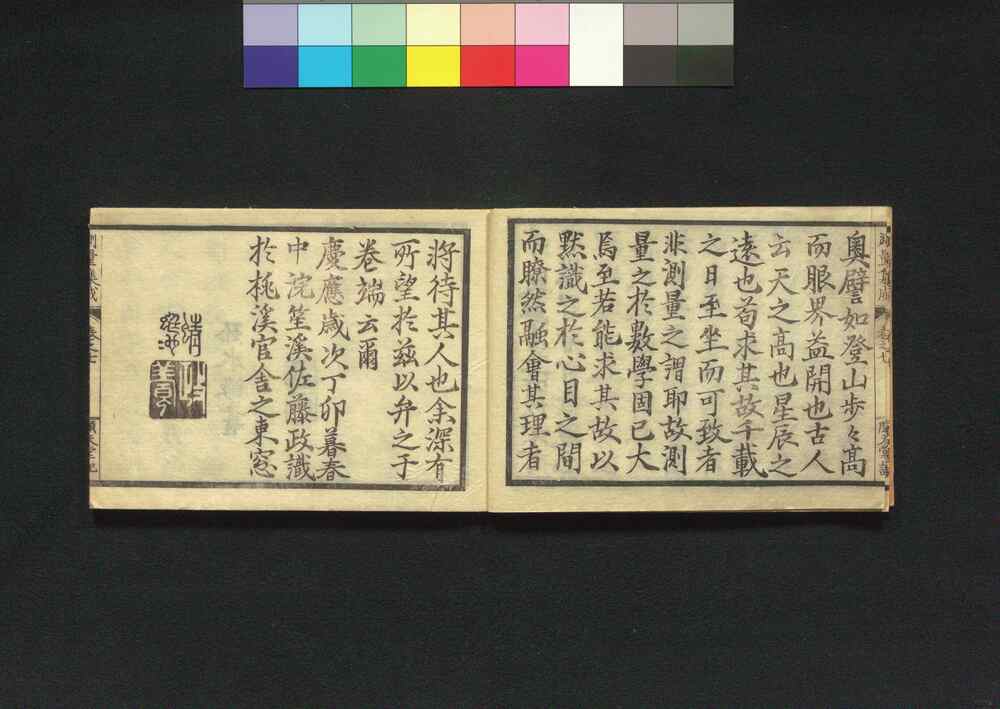 奧譬如登山歩々髙
而眼界益開也古人
云天之髙也星辰之
遠也苟求其故千載
之日至坐而可致者
非測量之謂耶故測
量之於數學固已大
焉至若能求其故以
黙識之於心目之間
而瞭然融會其理者
將待其人也余深有
所望於兹以弁之于
卷端云爾
慶應歳次丁卯暮春
中浣笙溪佐藤政識
於桃溪官舎之東窓